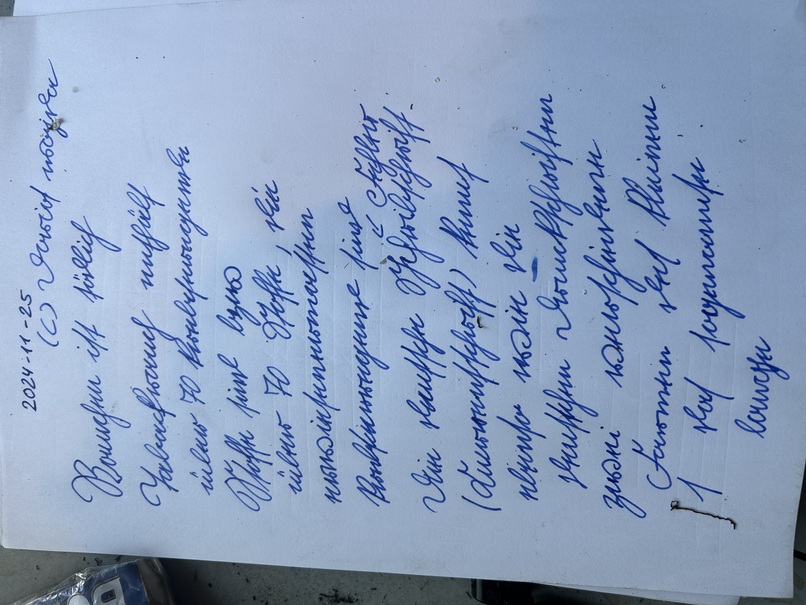 2024-11-25
(C) David
Rauchen ist tödlich
Tabakrauch enthält
über 70 krebserregende
Stoffe sind bzw
über 70 Stoffe, die
erwiesenermassen
krebserregend sind
← Fehler
Die deutsche Schreibschrift
(Kurrentschrift) kennt
ebenso wie die
deutschen Druckschriften
zwei verschiedene
Formen des kleinen
s das sogenannte
lange